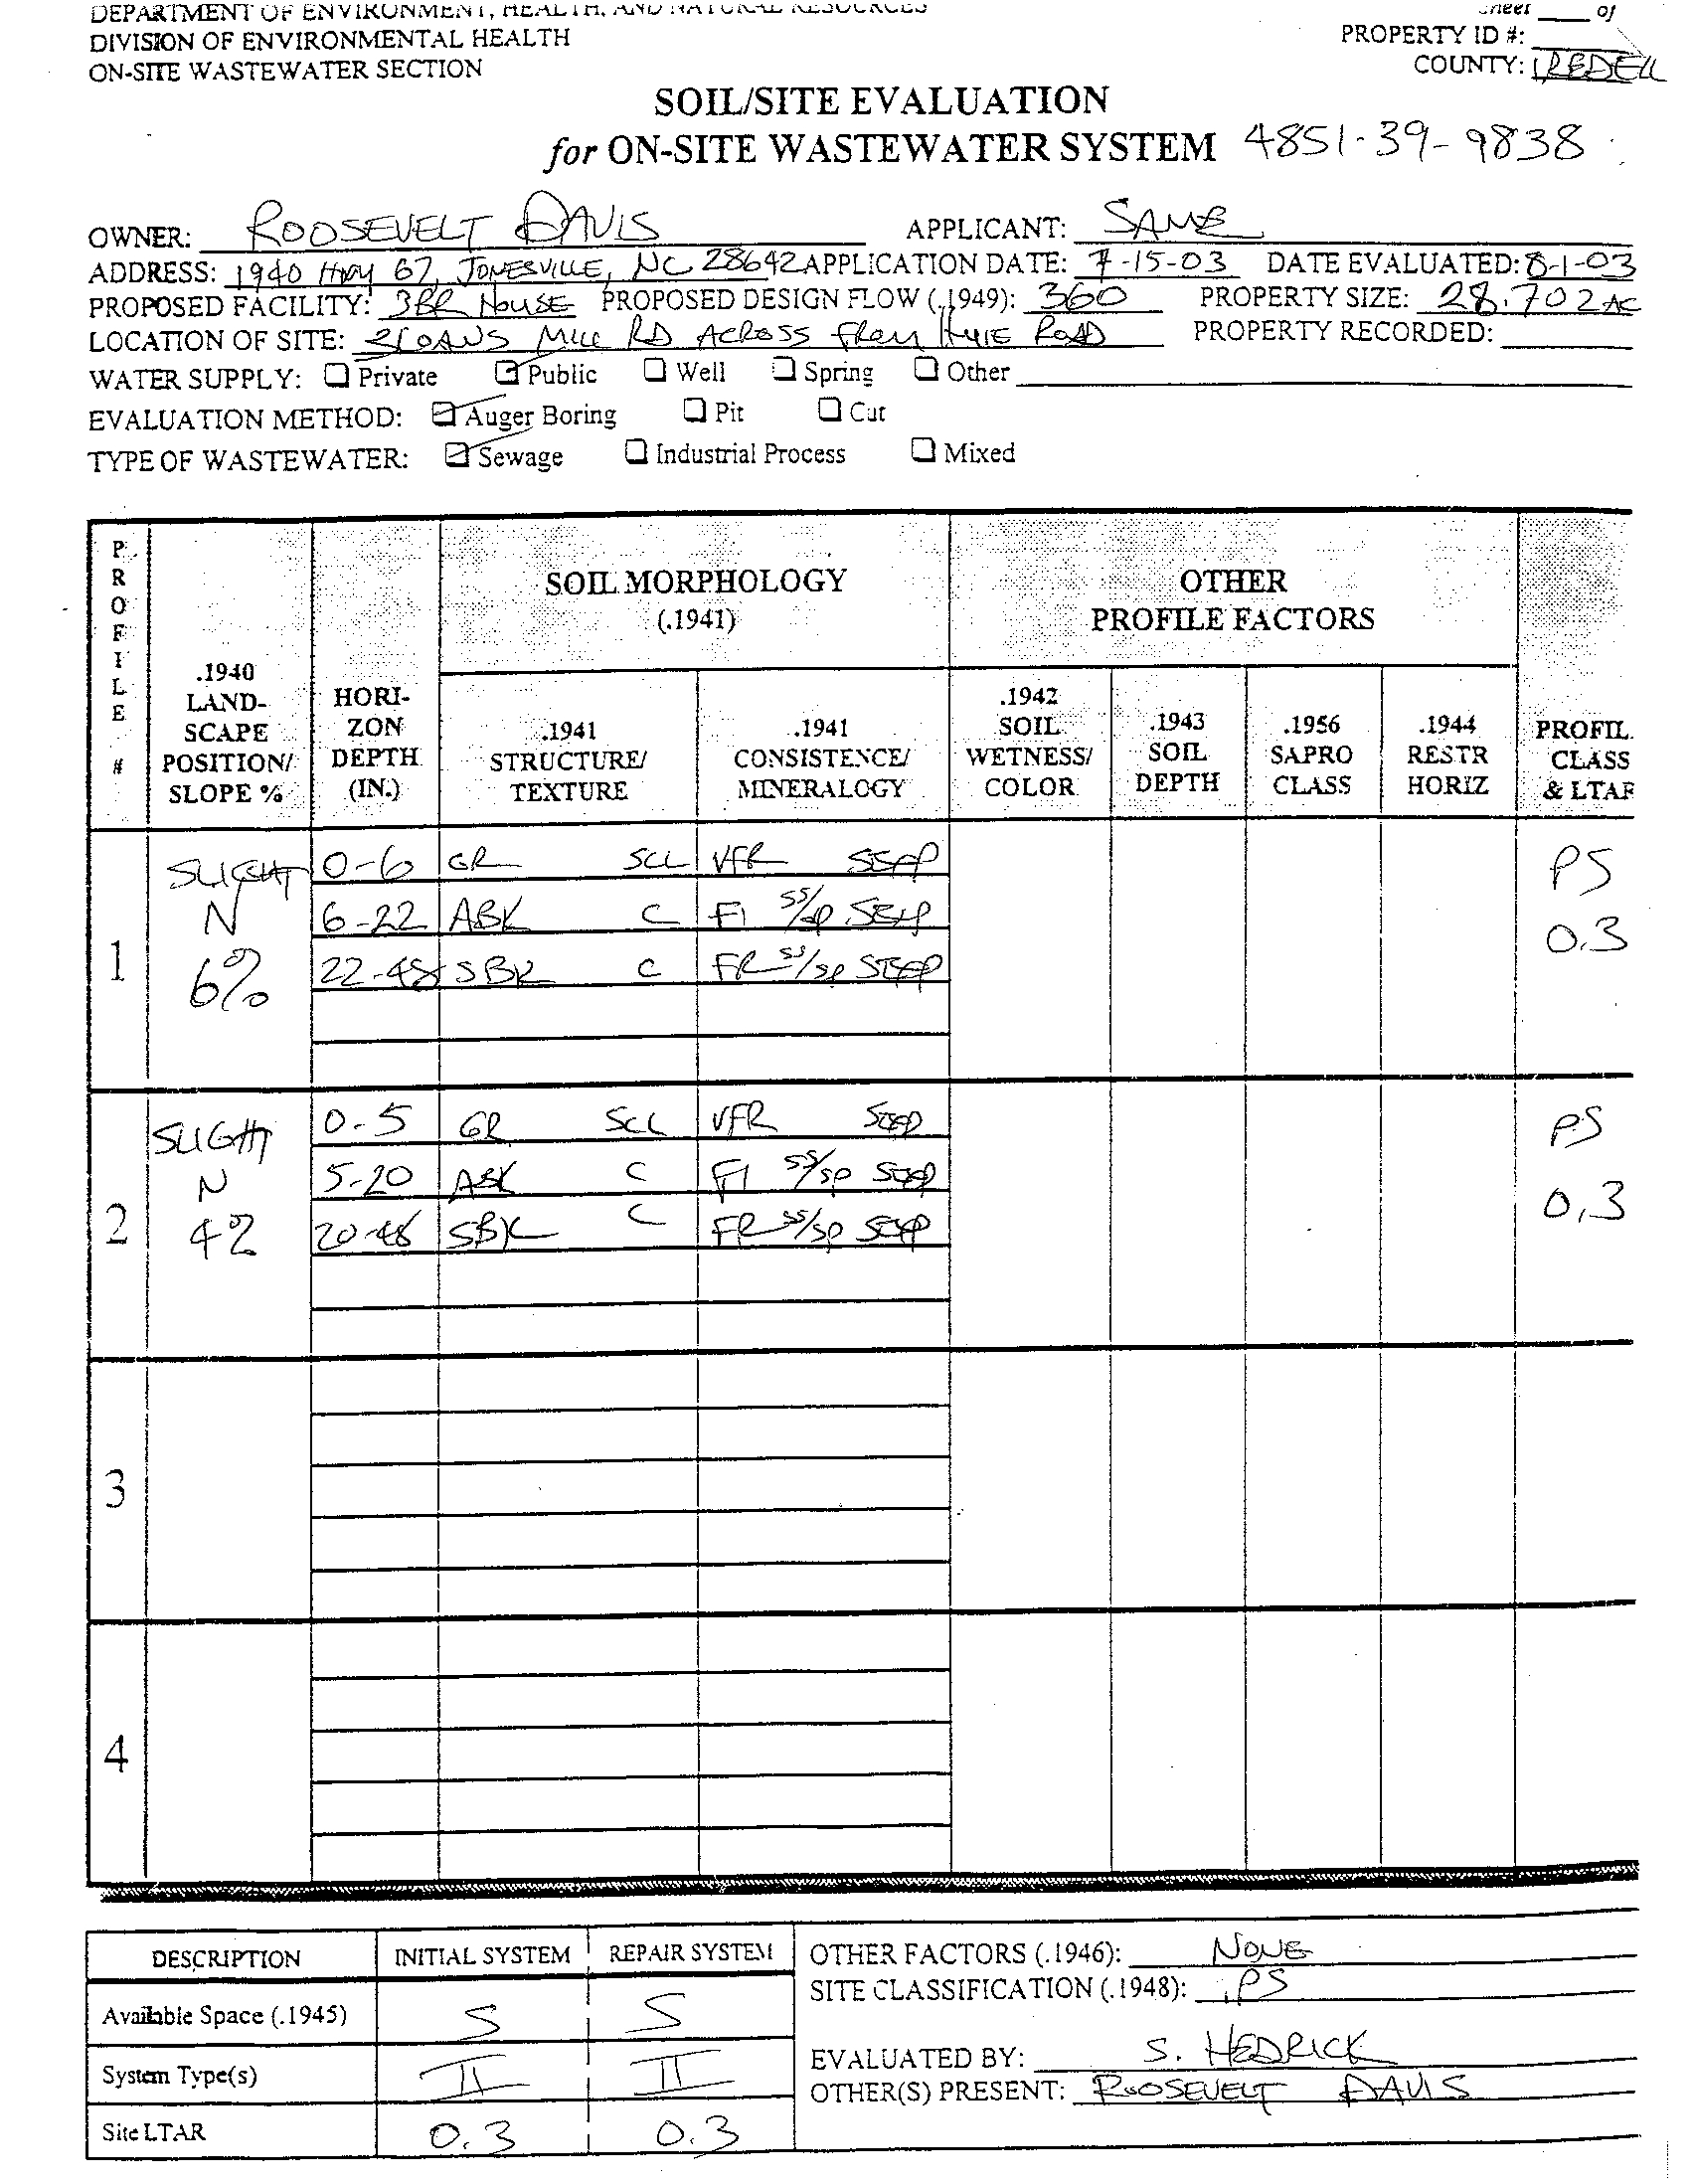 DEPARTMENT OF ENVIRONMENT, HEALTH, AND NATURAL RESOURCES
Sheet ____ of
DIVISION OF ENVIRONMENTAL HEALTH
PROPERTY ID #:
ON-SITE WASTEWATER SECTION
COUNTY: IREDELL
SOIL/SITE EVALUATION
for ON-SITE WASTEWATER SYSTEM 4851-39-9838
OWNER: ROOSEVELT DAVIS APPLICANT: SAME
ADDRESS: 1940 HWY 67, JONESVILLE, NC 28642 APPLICATION DATE: 7-15-03 DATE EVALUATED: 8-1-03
PROPOSED FACILITY: 3BR HOUSE PROPOSED DESIGN FLOW (.1949): 360 PROPERTY SIZE: 28.702 AC
LOCATION OF SITE: SLOANS MILL RD ACROSS FROM ROAD PROPERTY RECORDED:
WATER SUPPLY: Private Public Well Spring Other
EVALUATION METHOD: Auger Boring Pit Cut
TYPE OF WASTEWATER: Sewage Industrial Process Mixed
PROFILE #
.1940 LAND-SCAPE POSITION/ SLOPE %
HORI-ZON DEPTH (IN.)
SOIL MORPHOLOGY (.1941)
.1941 STRUCTURE/ TEXTURE
.1941 CONSISTENCE/ MINERALOGY
OTHER PROFILE FACTORS
.1942 SOIL WETNESS/ COLOR
.1943 SOIL DEPTH
.1956 SAPRO CLASS
.1944 RESTR HORIZ
PROFIL CLASS & LTAR
1 SLIGHT N 6%
0-6 GR SCL VFR SEXP
6-22 ABK C FI SS/SP SEXP
22-48 SBK C FR SS/SP SEXP
PS 0.3
2 SLIGHT N 4%
0-5 GR SCL VFR SEXP
5-20 ABK C FI SS/SP SEXP
20-48 SBK C FR SS/SP SEXP
PS 0.3
3
4
DESCRIPTION INITIAL SYSTEM REPAIR SYSTEM
Available Space (.1945) S S
System Type(s) II II
Site LTAR 0.3 0.3
OTHER FACTORS (.1946): NONE
SITE CLASSIFICATION (.1948): PS
EVALUATED BY: S. HEDRICK
OTHER(S) PRESENT: ROOSEVELT DAVIS